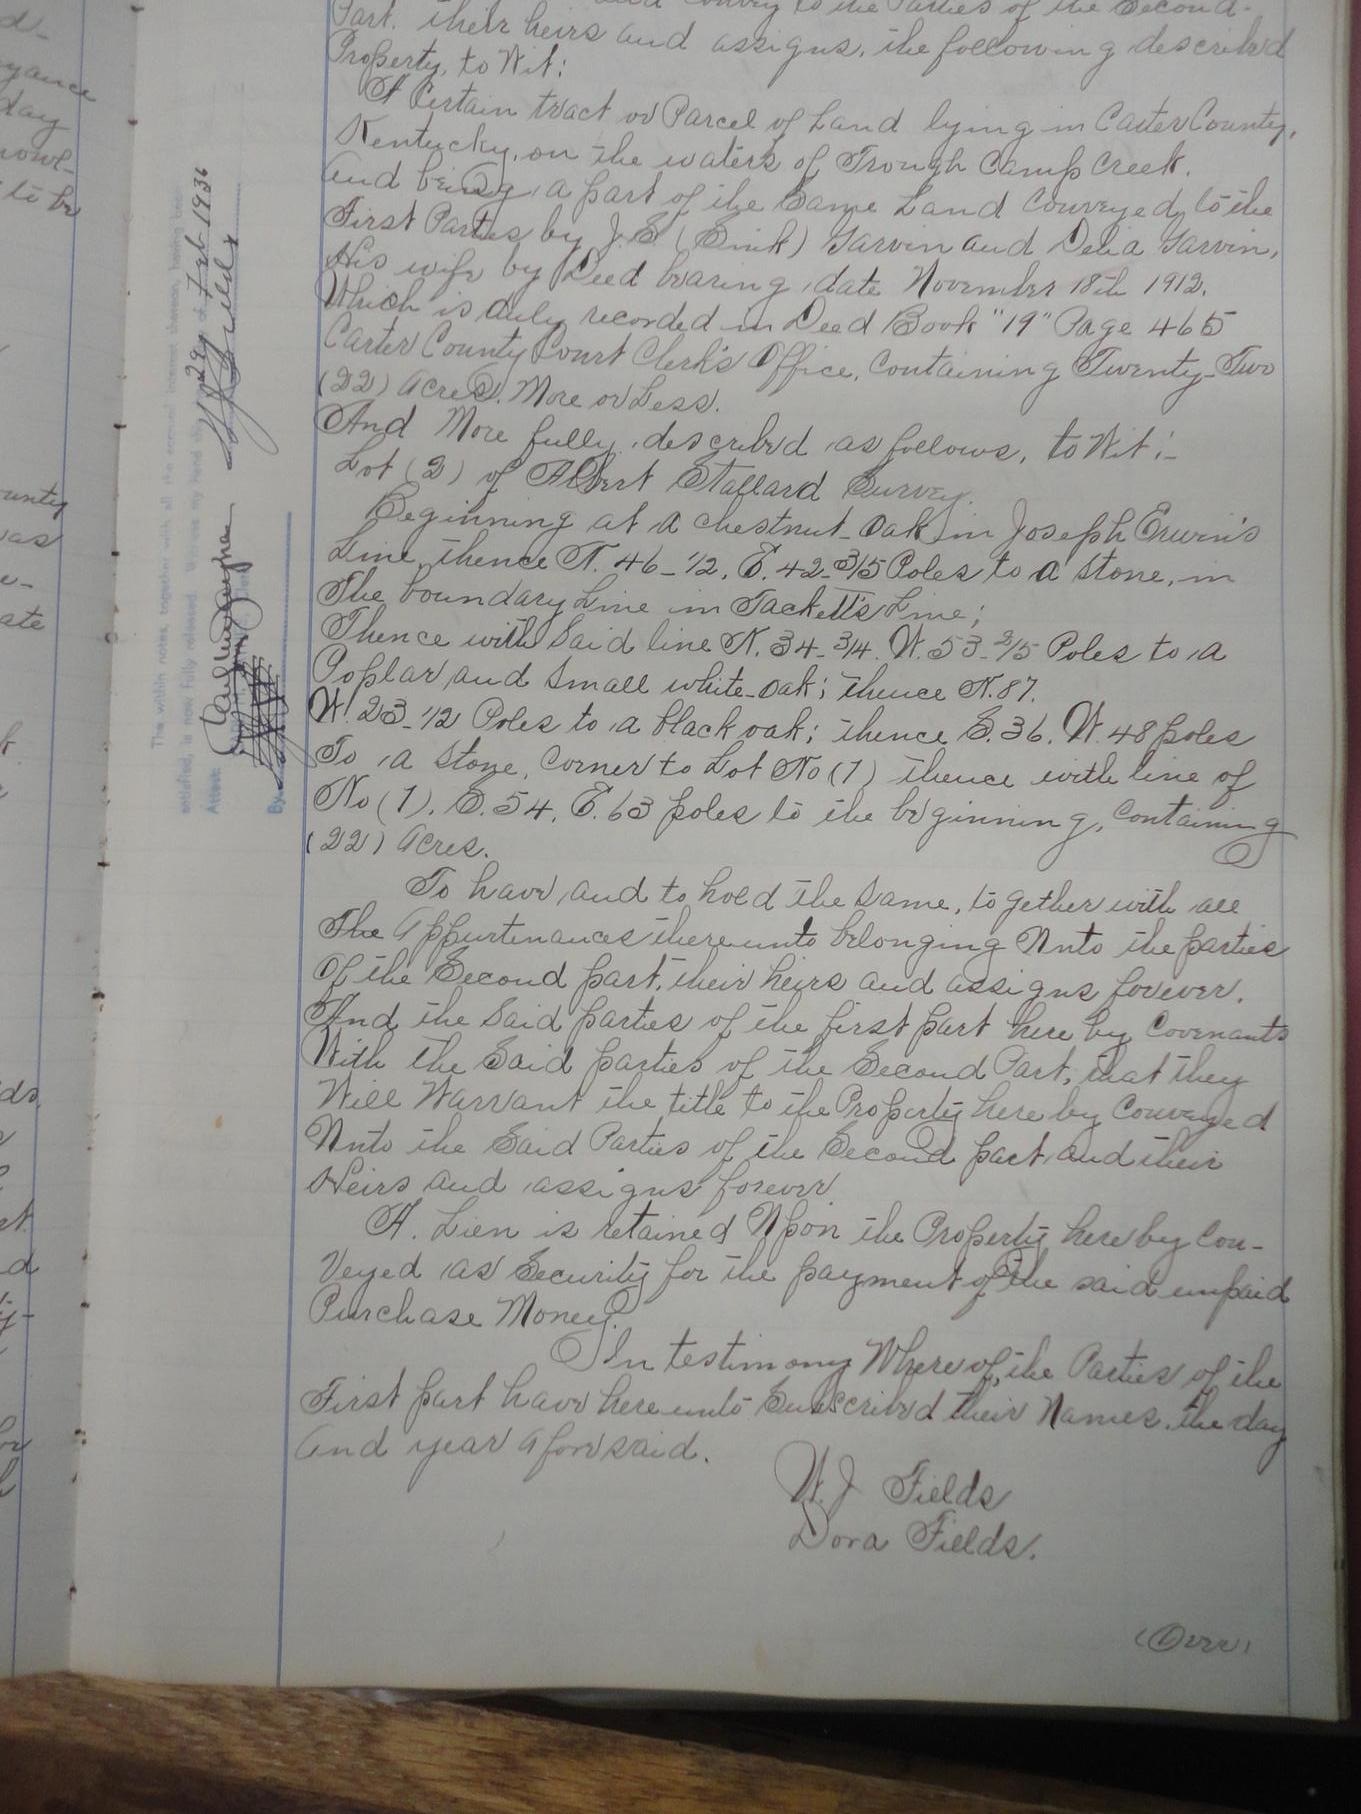 and convey to the Parties of the Second
Part. their heirs and assigns, the following described
Property, to Wit:
A Certain tract or Parcel of Land lying in Carter County,
Kentucky, on the waters of Trough Camp Creek.
And being a part of the Same Land Conveyed, to the
First Parties by J.E (Emk) Garvin and Delia Garvin,
His wife by Deed bearing date November 18th 1912.
Which is duly recorded in Deed Book "19" Page 465
Carter County Court Clerk's Office, Containing Twenty-Two
(22) Acres. More or Less.
And More fully, described as follows, to Wit:-
Lot (2) of Albert Stallard Survey.
Beginning at a chestnut-oak in Joseph Erwin's
Line, thence N. 46-1/2. E. 42-3/5 Poles to a Stone, in
The boundary Line in Tackett's Line;
Thence with Said line N. 34-3/4. W. 53-2/5 Poles to a
Poplar and small white-oak; thence N. 87.
W. 23-1/2 Poles to a black oak; thence S. 36. W. 48 poles
To a Stone, Corner to Lot No (1) thence with line of
No (1). S. 54. E. 63 poles to the beginning, Containing
(22) Acres.
To have and to hold the Same, together with all
The Appurtenances thereunto belonging Unto the parties
Of the Second part, their heirs and assigns forever.
And the Said parties of the first part here by Covenants
With the Said parties of the Second Part, that they
Will Warrant the title to the Property here by Conveyed
Unto the Said Parties of the Second part and their
Heirs and assigns forever
A. Lien is retained Upon the Property here by Con-
Veyed as Security for the payment of the said unpaid
Purchase Money.
In testimony Whereof, the Parties of the
First part have here unto Subscribed their Names. the day
And year Aforesaid.
W. J Fields
Dora Fields.
(Over)
The within notes, together with all the accrued interest thereon, having been
satisfied, is now fully released. Witness my hand this 29 day of Feb 1936
W J Fields
Attest:
By
yance
day
nowl-
to be
ounty
as
ate
ds